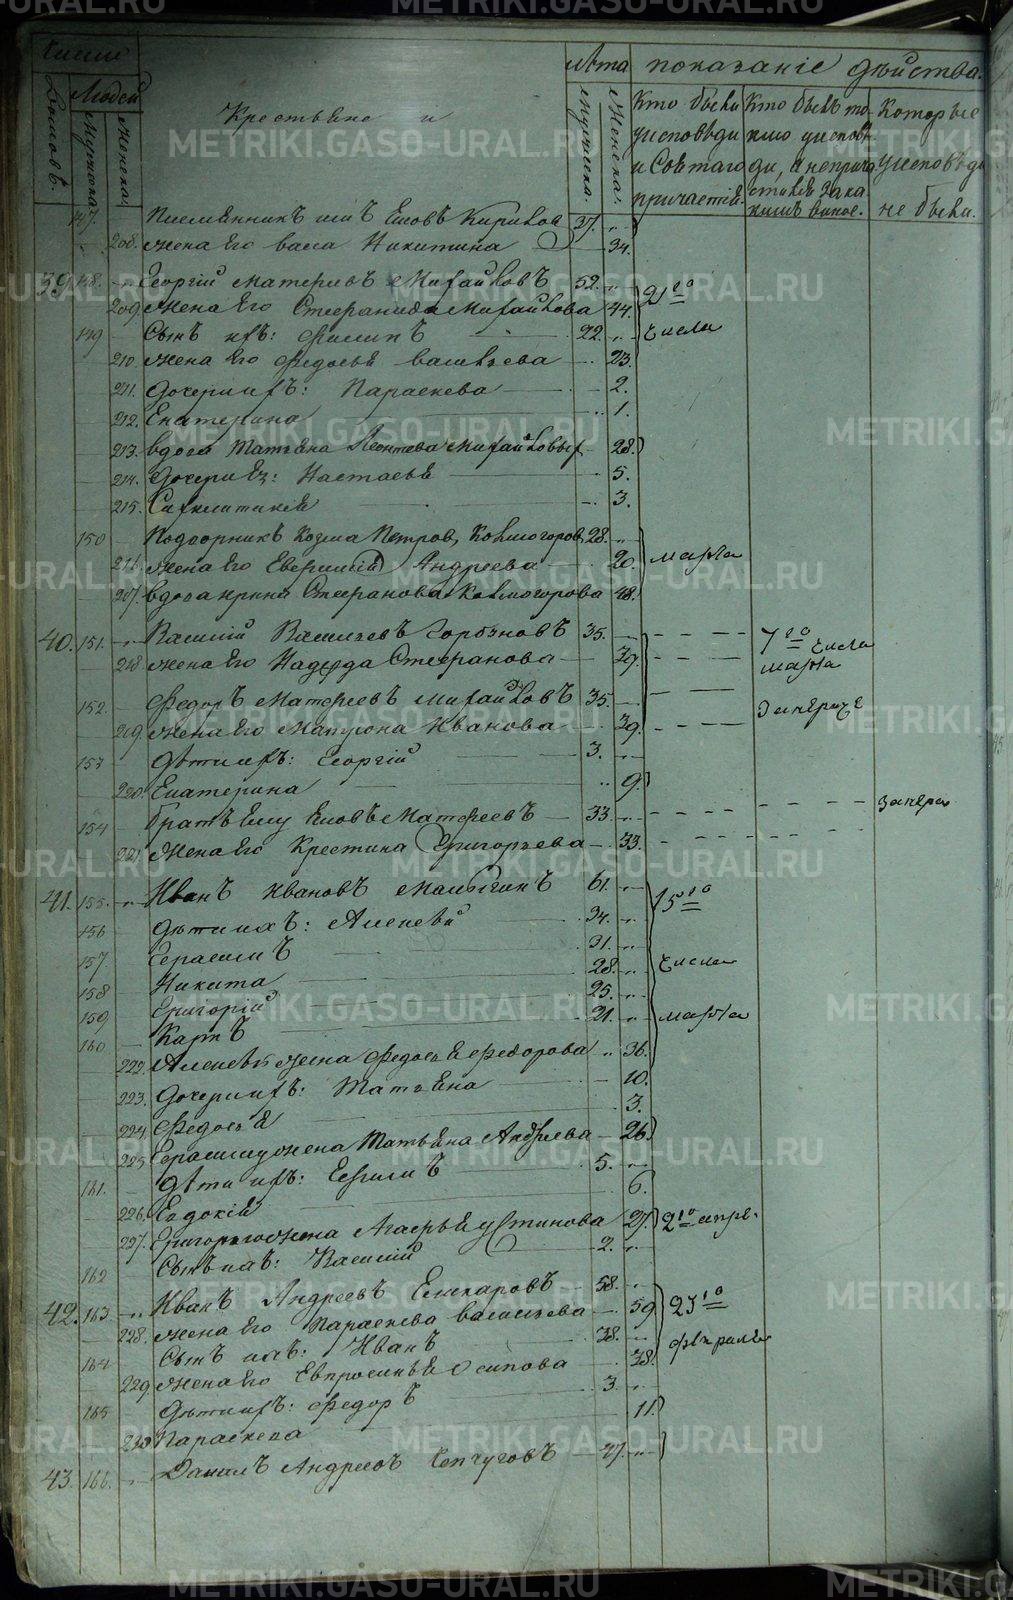 METRIKI.GASO-URAL.RU
Число
Домовъ.
Людей
Мужеска.
Женска.
Крестьяне и
Лѣта
Мужеска.
Женска.
показаніе дѣйства.
Кто были
у исповѣди
и Св: таго
причастія
Кто былъ то-
кмо у исповѣ-
ди, а неприча-
стился и за ка-
кимъ виною.
Которые
у исповѣди
не были.
147. 37. -„-
208. жена Его Васса Никитина 34.
39. 148. -„- Георгій Матвеевъ Михайловъ 52. -„-
209. Жена Его Стефанида Михайлова 44. 21го
149 Сынъ ихъ: Филипъ 22. -„- числа
210. жена Его Федосья Васильева 23.
211. Дочери ихъ: Параскева 2.
212. Екатерина 1.
213. вдова Татьяна Леонтева Михайловыхъ 28.
214. Дочери Ея: Настасья 5.
215. 3.
150 Подворникъ Козма Петров, Колмогоров 28. -„-
216. жена Его Андреева 20. марта
217. вдова Ирина Стефанова Колмогорова 48.
40. 151. -„- Василій Васильевъ Горбуновъ 35. 7го числа
218. жена Его Надежда Стефанова 39. марта
152. Федоръ Матфеевъ Михайловъ 35.
219. жена Его Матрона Иванова 39.
153 Дѣти ихъ: Георгій 3. -„-
220. Екатерина 9.
154 Братъ Ему Матфеевъ 33. -„-
221. жена Его Крестина Григорьева 33.
41. 155. -„- Иванъ Ивановъ Малыгинъ 61. -„- 15го
156 Дѣти ихъ: Алексей 34. -„-
157 Герасимъ 31. -„- числа
158 Никита 28. -„-
159 Григорій 25. -„-
160 Карпъ 21. -„- марта
222. Алексея жена Федосья Федорова „ 36.
223. Дочери ихъ: Татьяна 10.
224. Федосья 3.
225. Герасиму жена Татьяна Андреева 26.
161. Дѣти ихъ: Ефимъ 5. -„-
226. Евдокія 6.
227. Григорья жена Агафья Устинова 27. 2го апре.
162 Сынъ ихъ: Василій 2. -„-
42. 163. -„- Иванъ Андреевъ 58. -„- 23го
228. жена Его Параскева Васильева 59
164 Сынъ ихъ: Иванъ 38. февраля
229. жена Его Евпросинья Осипова 38.
165 Дѣти ихъ: Федоръ 3. -„-
230. Параскева 11.
43. 166. -„- Данилъ Андреев Чепчуговъ -„-